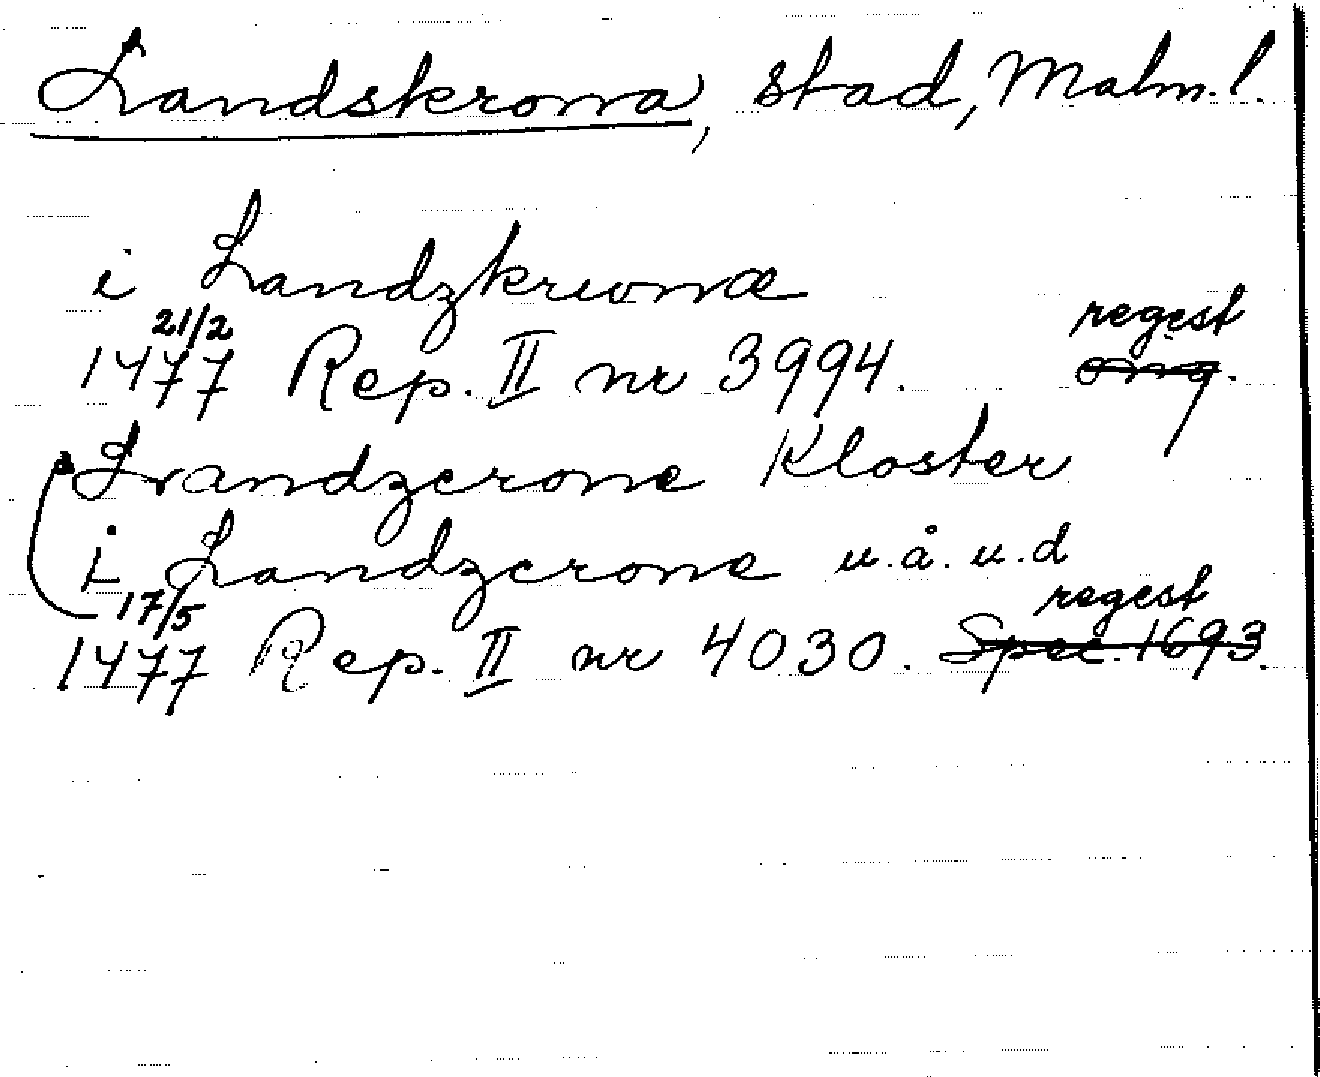 Landskrona, stad, Malm. l.
i Landzkrona
21/2 regest
1477 Rep. II nr 3994. orig.
Landzcrone Kloster
i Landzcrone u.å.u.d
17/5 regest
1477 Rep. II nr 4030. Spec. 1693.